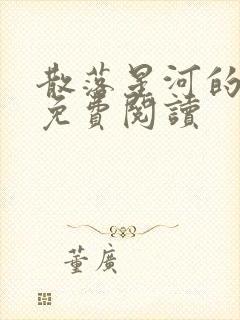 散落星河的
免費閱讀
董廣